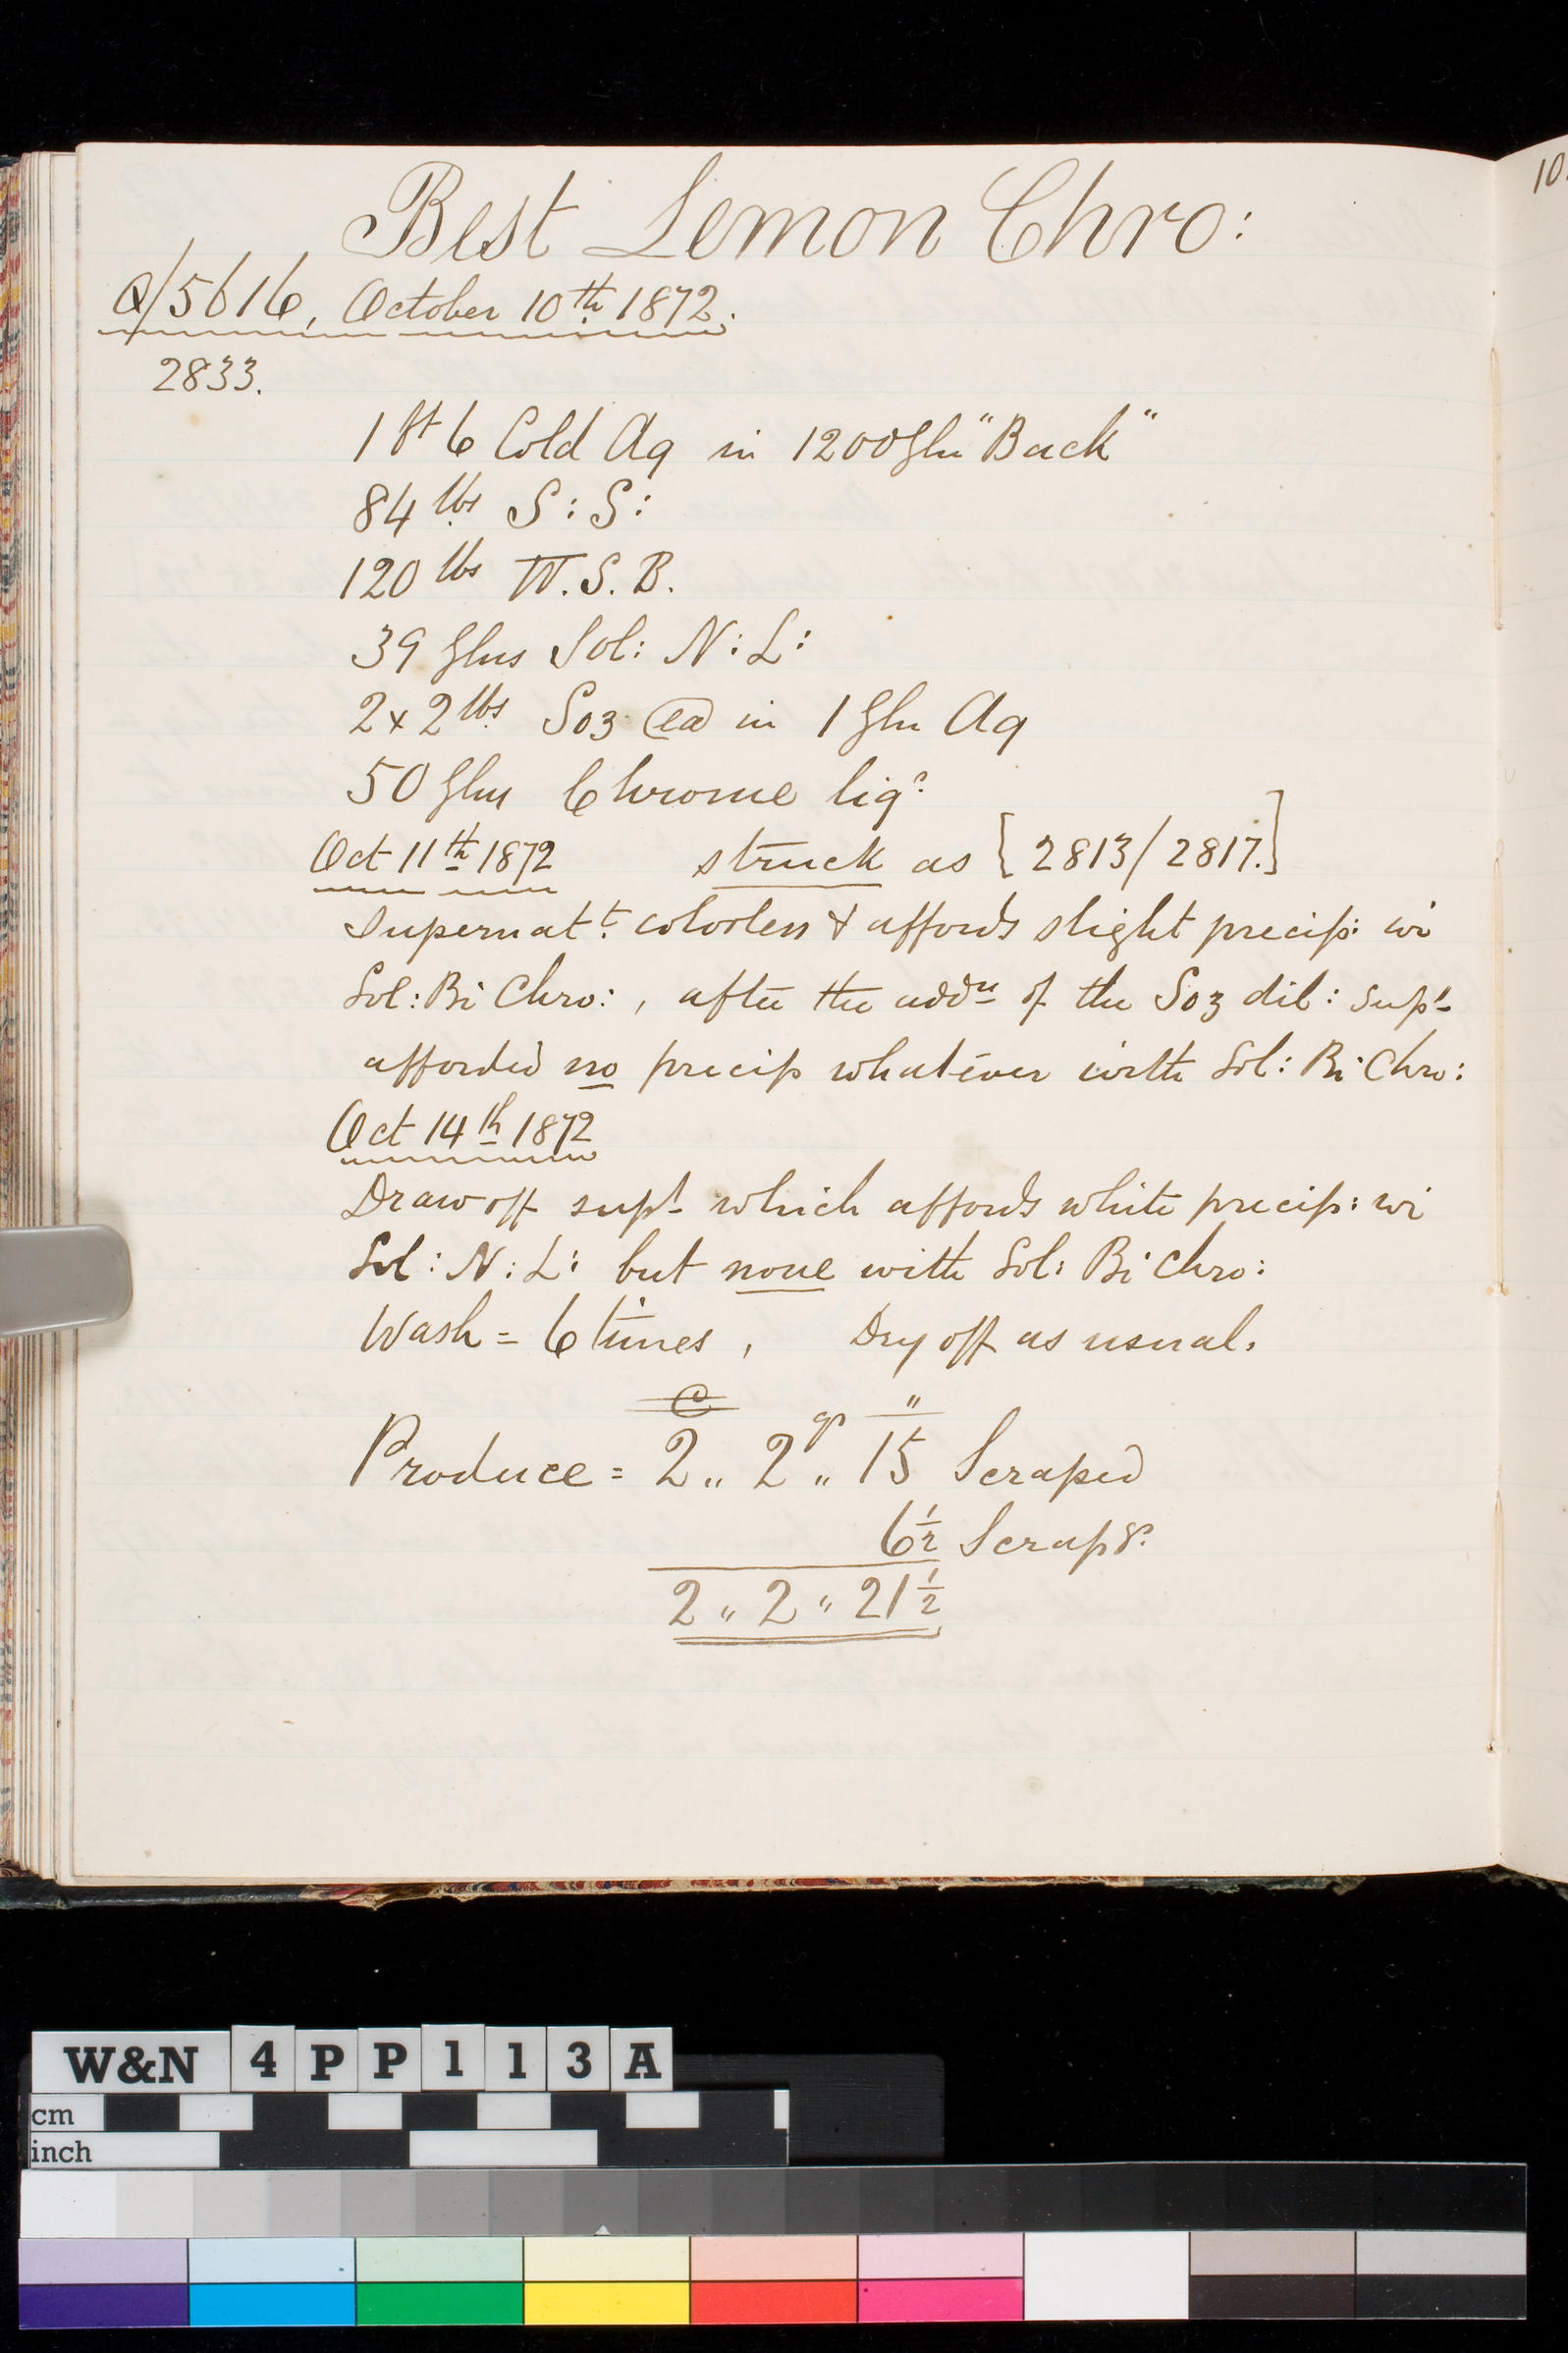 10
Best Lemon Chro:
Q/5616, October 10th 1872.
2833.
1 ft 6 Cold Aq in 1200 Gln "Back"
84 lbs S:S:
120 lbs W.S.B.
39 Glns Sol: N:L:
2 x 2 lbs So3 ea in 1 Gln Aq
50 Glns Chrome liqr
Oct 11th 1872 struck as [2813/2817.]
Supernatt. colorless & affords slight precip: wi
Sol: Bi Chro:, after the addn of the So3 dil: supt
afforded no precip whatever with Sol: Bi Chro:
Oct 14th 1872
Draw off supt which affords white precip: wi
Sol: N:L: but none with Sol: Bi Chro:
Wash = 6 times, Dry off as usual.
C qr "
Produce = 2 „ 2 „ 15 Scraped
6 1/2 Scraps.
2 „ 2 „ 21 1/2
W&N 4PP113A
cm
inch